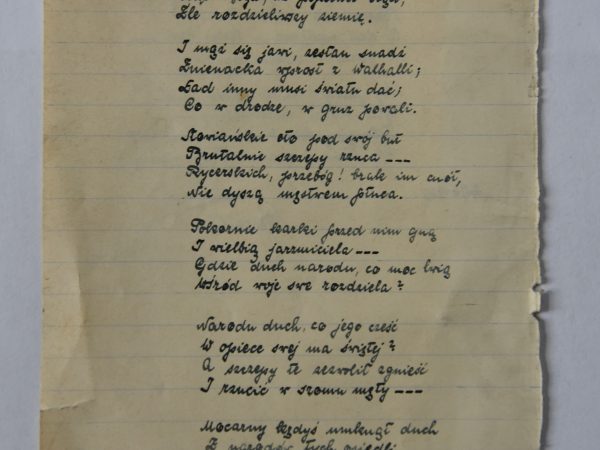 że popełnił błąd,
Źle rozdzieliwszy ziemię.
I mąż się jawi, zesłan snadź
Znienacka wprost z Walhalli;
Ład inny musi światu dać;
Co w drodze, w gruz powali.
Słowiańskie oto pod swój but
Brutalnie szczepy rzuca ---
Rycerskich, przebóg! brak im cnót,
Nie dyszą męstwem płuca.
Pokornie karki przed nim gną
I wielbią jarzmiciela ---
Gdzie duch narodu, co moc lwią
Wśród woje swe rozdziela?
Narodu duch, co jego cześć
W opiece swej ma świętej?
A szczepy te zezwolił zgnieść
I rzucić w szumu męty ---
Mocarny kędyś umknął duch
Z narodów tych